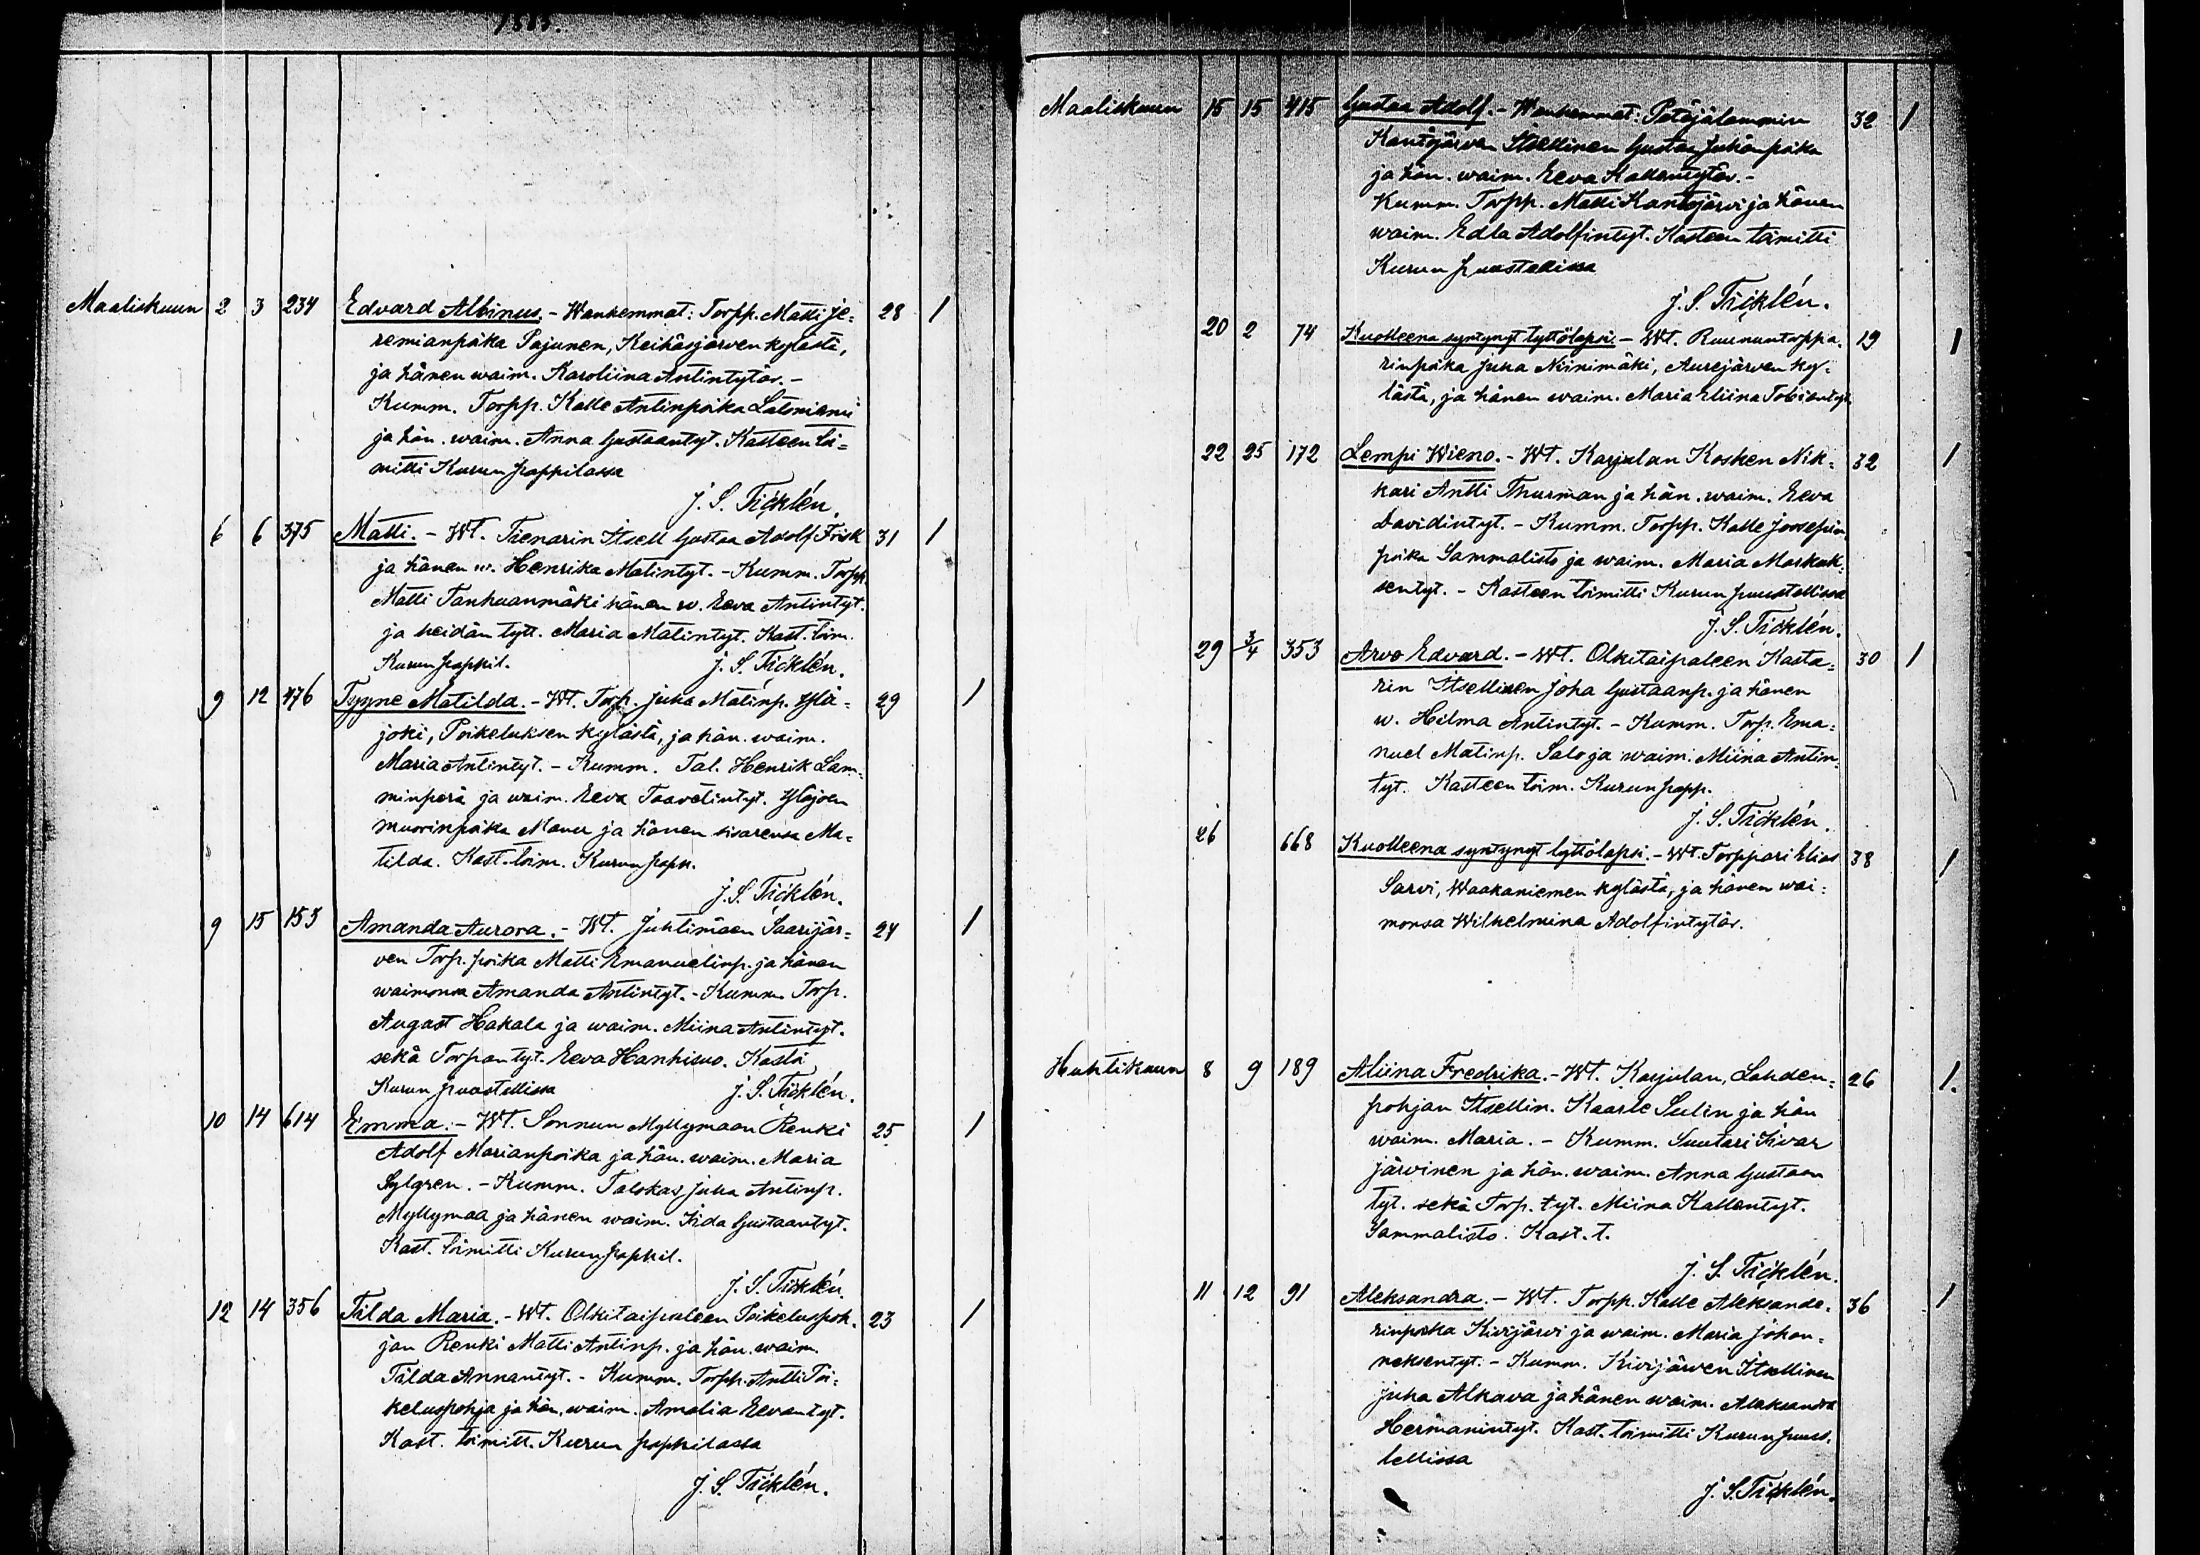 Maaliskuun 2 3 234 Edvard Albinus. - Wanhemmat: Torpp. Matti Je= 28 1
remianpoika Pajunen, Keihäsjärven kylästä,
ja hänen waim. Karoliina Antintytär. -
Kumm. Torpp. Kalle Antinpoika Latoniemi
ja hän. waim. Anna Gustaantyt. Kasteen toi=
mitti Kurun pappilassa
J. S. Ticklén.
6 6 375 Matti. - Wt. Tienarin Itsell Gustaa Adolf Frisk 31 1
ja hänen w. Henrika Matintyt. - Kumm. Torpp.
Matti Tanhuanmäki hänen w. Eeva Antintyt.
ja heidän tytt. Maria Matintyt. Kast. toim.
Kurun pappil. J. S. Ticklén.
9 12 476 Tyyne Matilda. - Wt. Torp. Juha Matinp. Ylä= 29 1
joki, Poikeluksen kylästä, ja hän. waim.
Maria Antintyt. - Kumm. Tal. Henrik Lam=
minperä ja waim. Eeva Taavetintyt. Yläjoen
muorinpoika Manu ja hänen sisarensa Ma=
tilda. Kast. toim. Kurun papp.
J. S. Ticklén.
9 15 155 Amanda Aurora. - Wt. Juhtimäen Saarijär= 24 1
ven Torp. poika Matti Emanuelinp. ja hänen
waimonsa Amanda Antintyt. - Kumm Torp.
August Hakala ja waim. Miina Antintyt.
sekä Torpan tyt. Eeva Hanhisuo. Kasto
Kurun puustellissa J. S. Ticklén.
10 14 614 Emma. - Wt. Sonnun Myllymaan Renki 25 1
Adolf Marianpoika ja hän. waim. Maria
Sylgren. - Kumm. Talokas Juha Antinp.
Myllymaa ja hänen waim. Iida Gustaantyt.
Kast. toimitti Kurun pappil.
J. S. Ticklén.
12 14 356 Tilda Maria. - Wt. Olkitaipaleen Poikeluspoh= 23 1
jan Renki Matti Antinp. ja hän. waim.
Tilda Annantyt. - Kumm. Torpp. Antti Poi=
keluspohja ja hän. waim. Amalia Eevantyt.
Kast. toimitt. Kurun pappilassa
J. S. Ticklén.
Maaliskuun 15 15 415 Gustaa Adolf. - Wanhemmat: Petäjälammin 32 1
Kantojärven Itsellinen Gustaa Juhanpoika
ja hän. waim. Eeva Kallentytär. -
Kumm. Torpp. Matti Kantojärvi ja hänen
waim. Edla Adolfintyt. Kasteen toimitti
Kurun puustellissa
J. S. Ticklén.
20 2 74 Kuolleena syntynyt tyttölapsi. - Wt. Ruununtorppa= 19 1
rinpoika Juha Niinimäki, Aurejärven ky=
lästä, ja hänen waim. Maria Eliina Tobiantyt.
22 25 172 Lempi Wieno. - Wt. Karjulan Kosken Nik= 32 1
kari Antti Thurman ja hän. waim. Eeva
Davidintyt. - Kumm. Torpp. Kalle Joosepin
poika Sammalisto ja waim. Maria Markuk=
sentyt. - Kasteen toimitti Kurun puustellissa
J. S. Ticklén.
29 3/4 353 Arvo Edvard. - Wt. Olkitaipaleen Kasta= 30 1
rin Itsellinen Joha Gustaanp. ja hänen
w. Hilma Antintyt. - Kumm. Torp. Ema=
nuel Matinp. Salo ja waim. Miina Antin=
tyt. Kasteen toim. Kurun papp.
J. S. Ticklén.
26 668 Kuolleena syntynyt tyttölapsi. - Wt. Torppari Elias 38 1
Sarvi, Waakaniemen kylästä, ja hänen wai=
monsa Wilhelmina Adolfintytär.
Huhtikuun 8 9 189 Aliina Fredrika. - Wt. Karjulan, Lahden= 26 1.
pohjan Itsellin. Kaarle Sulin ja hän
waim. Maria. - Kumm. Suutari Iivar
Järvinen ja hän. waim. Anna Gustaan
tyt. sekä Torp. tyt. Miina Kallentyt.
Sammalisto. Kast. t.
J. S. Ticklén.
11 12 91 Aleksandra. - Wt. Torpp. Kalle Aleksande= 36 1
rinpoika Kivijärvi ja waim. Maria Johan=
neksentyt. - Kumm. Kivijärven Itsellinen
Juha Alkava ja hänen waim. Aleksandra
Hermanintyt. Kast. toimitti Kurun puus=
tellissa
J. S. Ticklén.